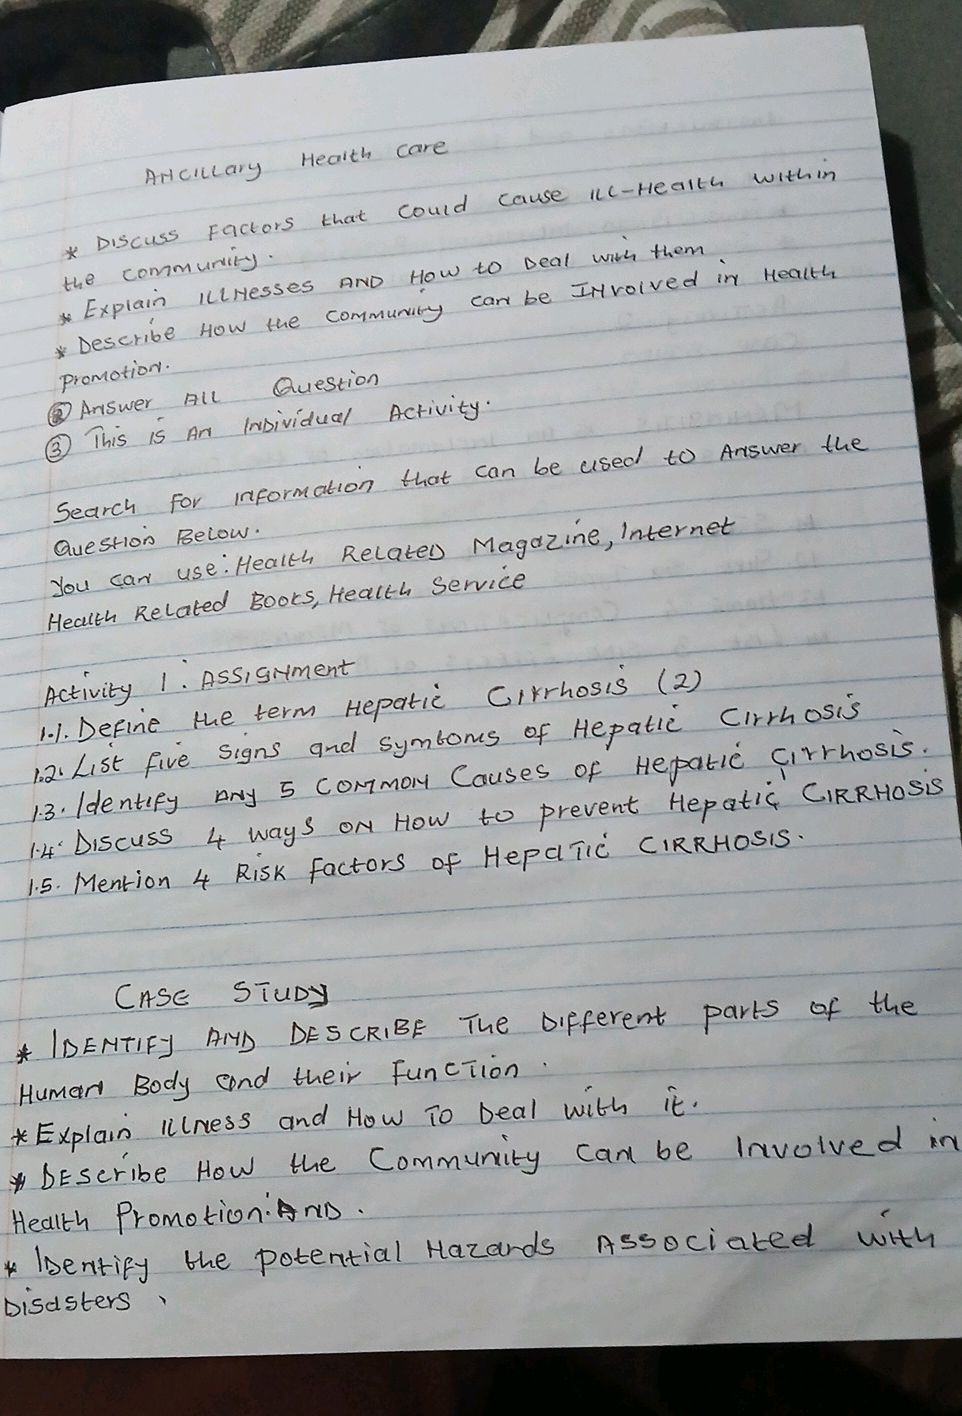 Ancillary Health care
* Discuss Factors that could cause ill-Health within
the community.
* Explain Illnesses AND How to Deal with them
* Describe How the community can be Involved in Health
promotion.
② Answer All Question
③ This is An Individual Activity.
Search for information that can be used to Answer the
Question Below.
You can use: Health Related Magazine, Internet
Health Related Books, Health Service
Activity 1: ASSIGNment
1.1. Define the term Hepatic Cirrhosis (2)
1.2. List five signs and symtoms of Hepatic Cirrhosis
1.3. Identify any 5 common Causes of Hepatic Cirrhosis.
1.4. Discuss 4 ways on How to prevent Hepatic CIRRHOSIS
1.5. Mention 4 Risk factors of Hepatic CIRRHOSIS.
CASE STUDY
* IDENTIFY AND DESCRIBE The Different parts of the
Human Body and their Function.
* Explain illness and How To Deal with it.
* Describe How the Community can be Involved in
Health Promotion. AND.
* Identify the potential Hazards Associated with
Disasters.